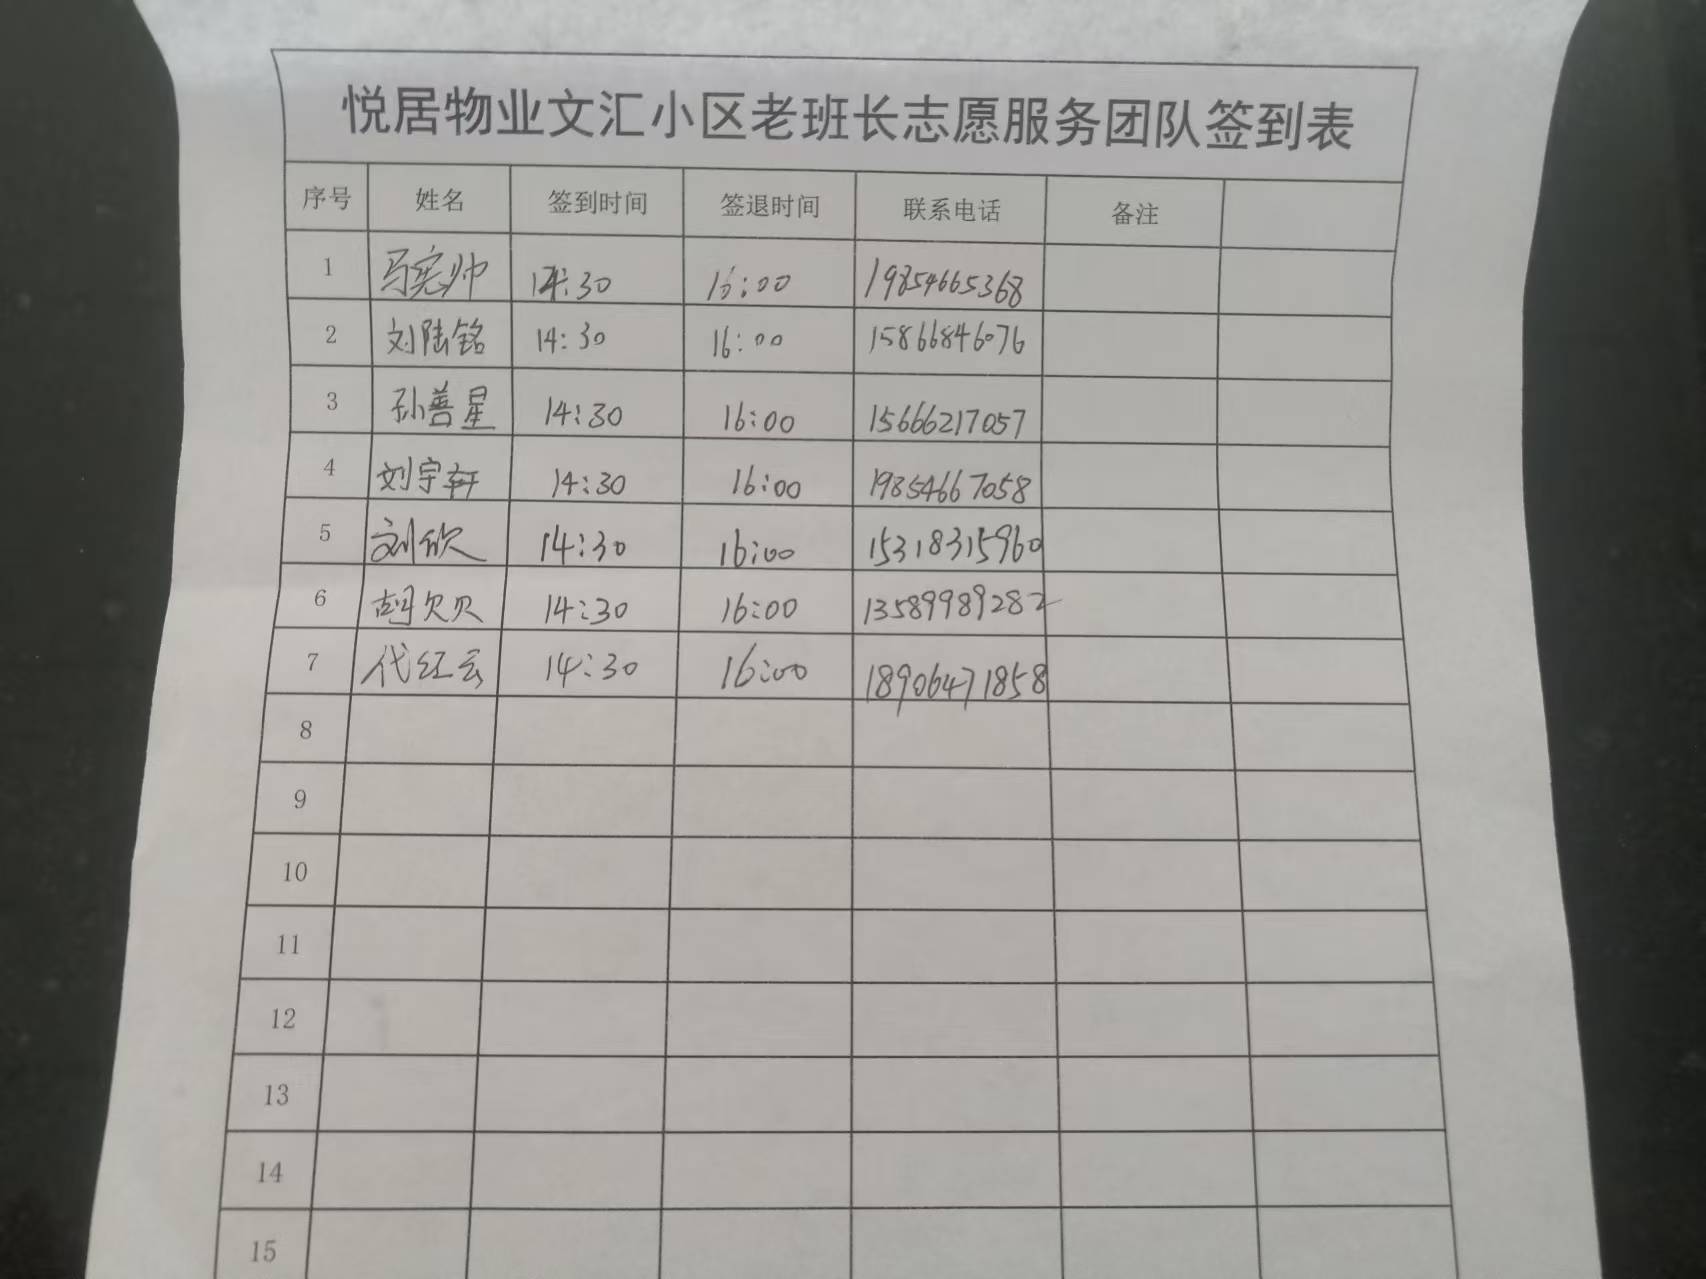 悦居物业文汇小区老班长志愿服务团队签到表
序号 姓名 签到时间 签退时间 联系电话 备注
1 马宪帅 14:30 16:00 19854665368
2 刘陆铭 14:30 16:00 15866846076
3 孙善星 14:30 16:00 15666217057
4 刘宇轩 14:30 16:00 19854667058
5 刘欣 14:30 16:00 15318315960
6 胡欠贝 14:30 16:00 13589989282
7 代红云 14:30 16:00 18906471858
8
9
10
11
12
13
14
15